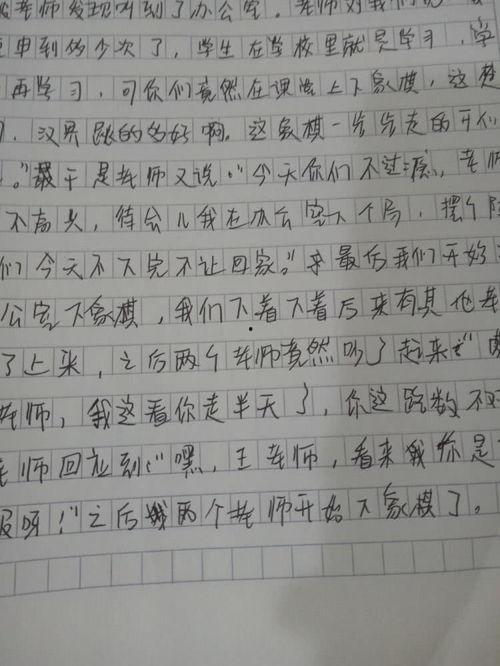 老师发现叫到了办公室。老师对我们说
申到多少次了，学生在学校里就是学习，学
再学习，可你们竟然在课堂上下象棋，这楚
汉界跳的多好啊。这象棋一步步走的
。"于是老师又说："今天你们不过瘾，老师
不高兴，待会儿我在办公室下个局，摆个阵
们今天不下完不让回家。"最后我们开始
公室下象棋，我们下着下着后来有其他老
了上来，之后两个老师竟然吵了起来："
老师，我这看你走半天了，你这路数不对
老师回应到："嘿，王老师，看来你是
服呀！"之后两个老师开始下象棋了。